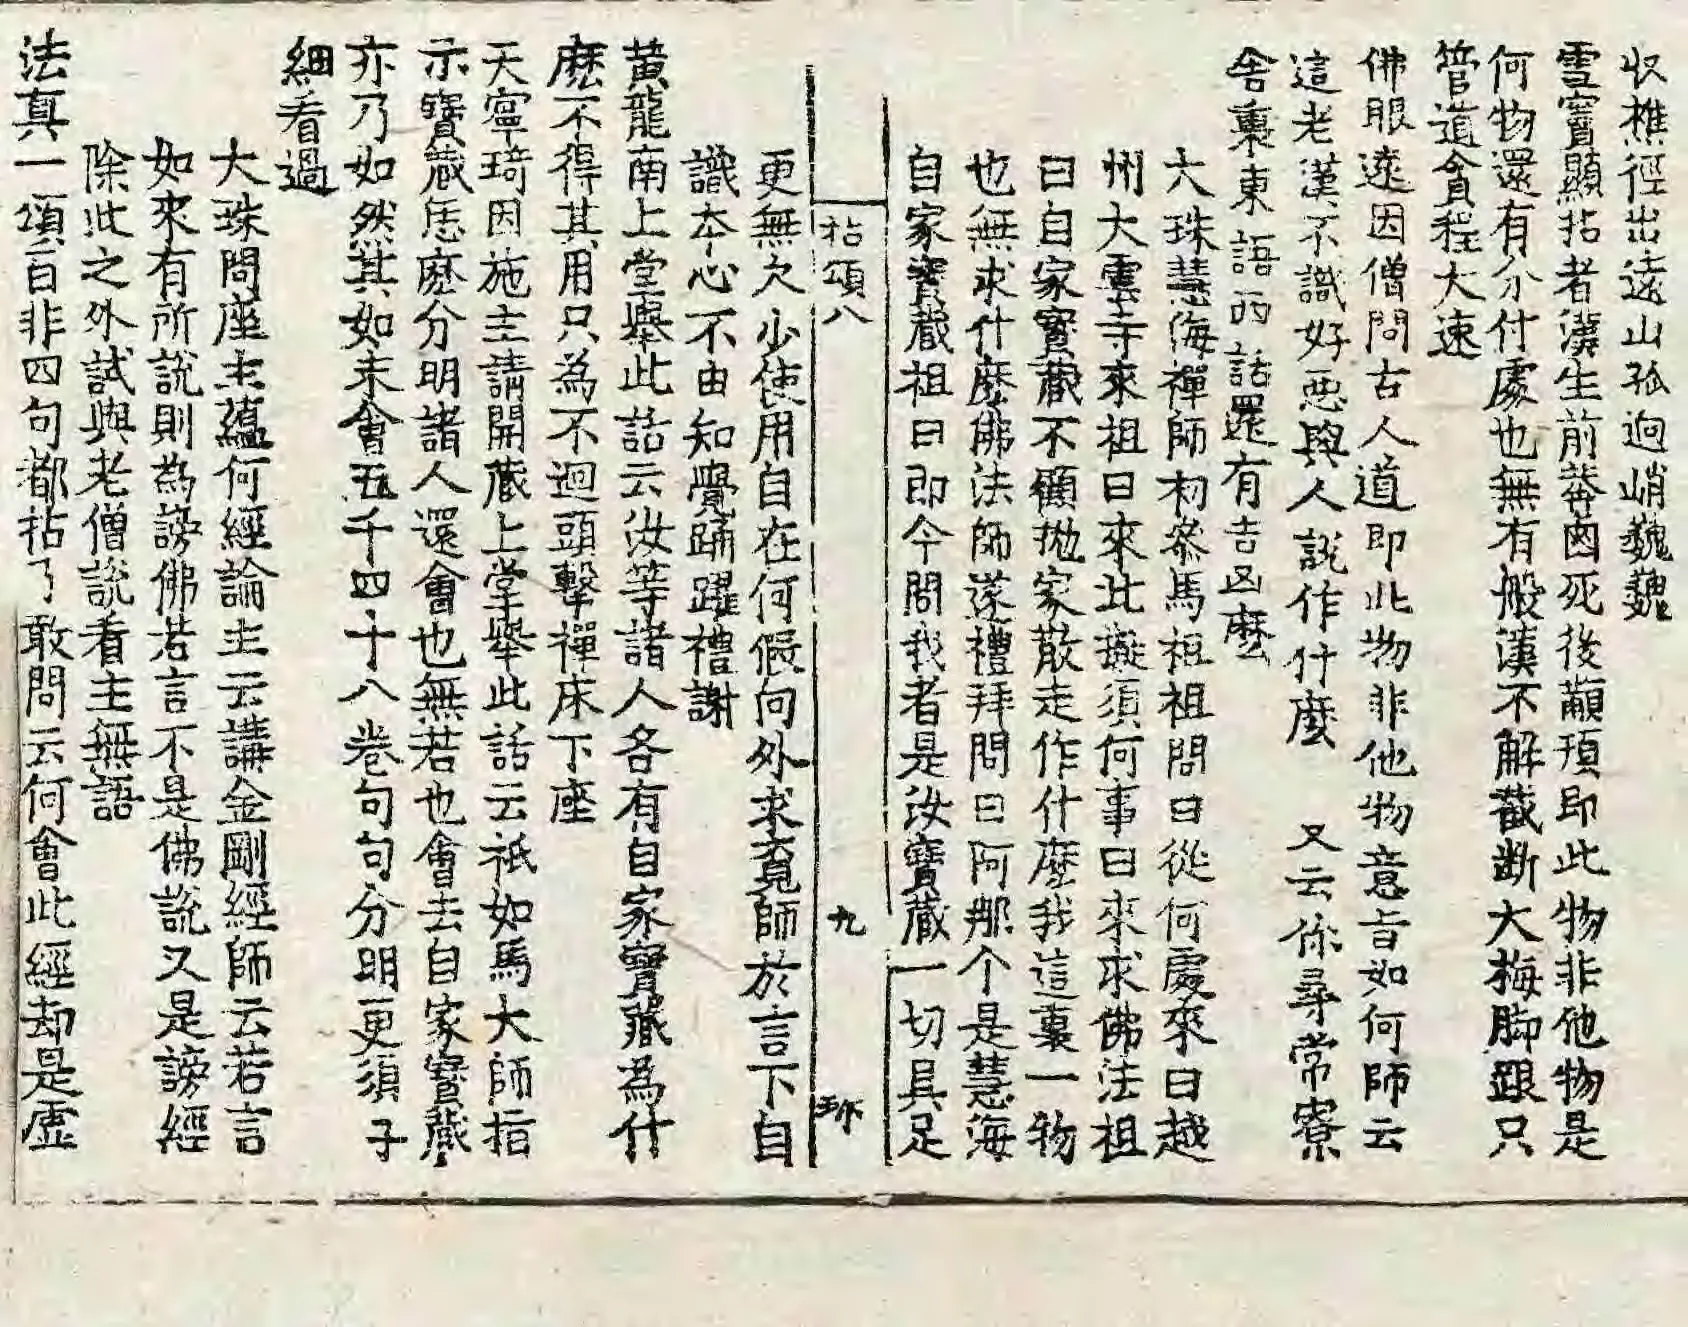 收樵徑出遠山孤迥峭巍巍
雪竇顯拈者漢生前莽鹵死後顢頇即此物非他物是
何物還有分付處也無有般漢不解截斷大梅脚跟只
管道貪程大速
佛眼遠因僧問古人道即此物非他物意旨如何師云
這老漢不識好惡與人說作什麼 又云你尋常寮
舍裏東語西話還有吉凶麼
大珠慧海禪師初叅馬祖祖問曰從何處來曰越
州大雲寺來祖曰來此擬須何事曰來求佛法祖
曰自家寶藏不顧拋家散走作什麼我這裏一物
也無求什麼佛法師遂禮拜問曰阿那个是慧海
自家寶藏祖曰即今問我者是汝寶藏一切具足
拈頌八 九
更無欠少使用自在何假向外求覔師於言下自
識本心不由知覺踊躍禮謝
黃龍南上堂舉此話云汝等諸人各有自家寶藏為什
麼不得其用只為不迴頭擊禪床下座
天寧琦因施主請開藏上堂舉此話云祇如馬大師指
示寶藏恁麼分明諸人還會也無若也會去自家寶藏
亦乃如然其如未會五千四十八卷句句分明更須子
細看過
大珠問座主蘊何經論主云講金剛經師云若言
如來有所說則為謗佛若言不是佛說又是謗經
除此之外試與老僧說看主無語
法真一頌百非四句都拈了敢問云何會此經却是虛